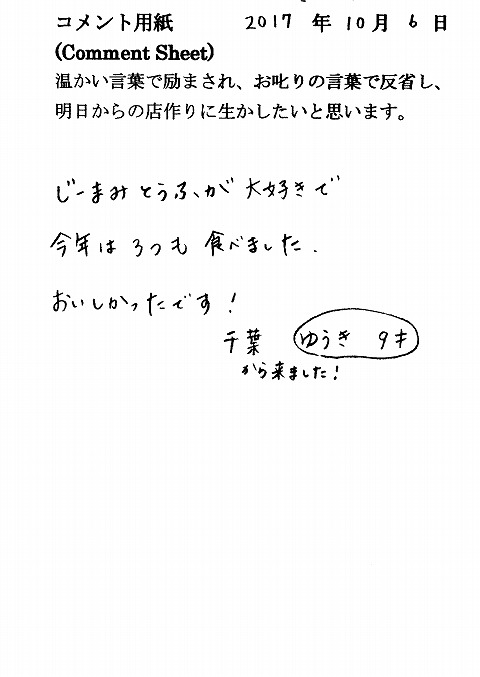 コメント用紙 2017 年 10 月 6 日
(Comment Sheet)
温かい言葉で励まされ、お叱りの言葉で反省し、
明日からの店作りに生かしたいと思います。
じーまみとうふが大好きで
今年は3つも食べました.
おいしかったです!
千葉 ゆうき 9才
から来ました!